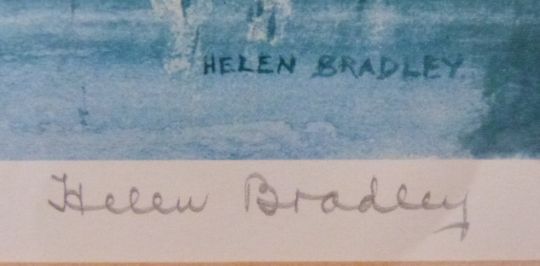 HELEN BRADLEY
Helen Bradley